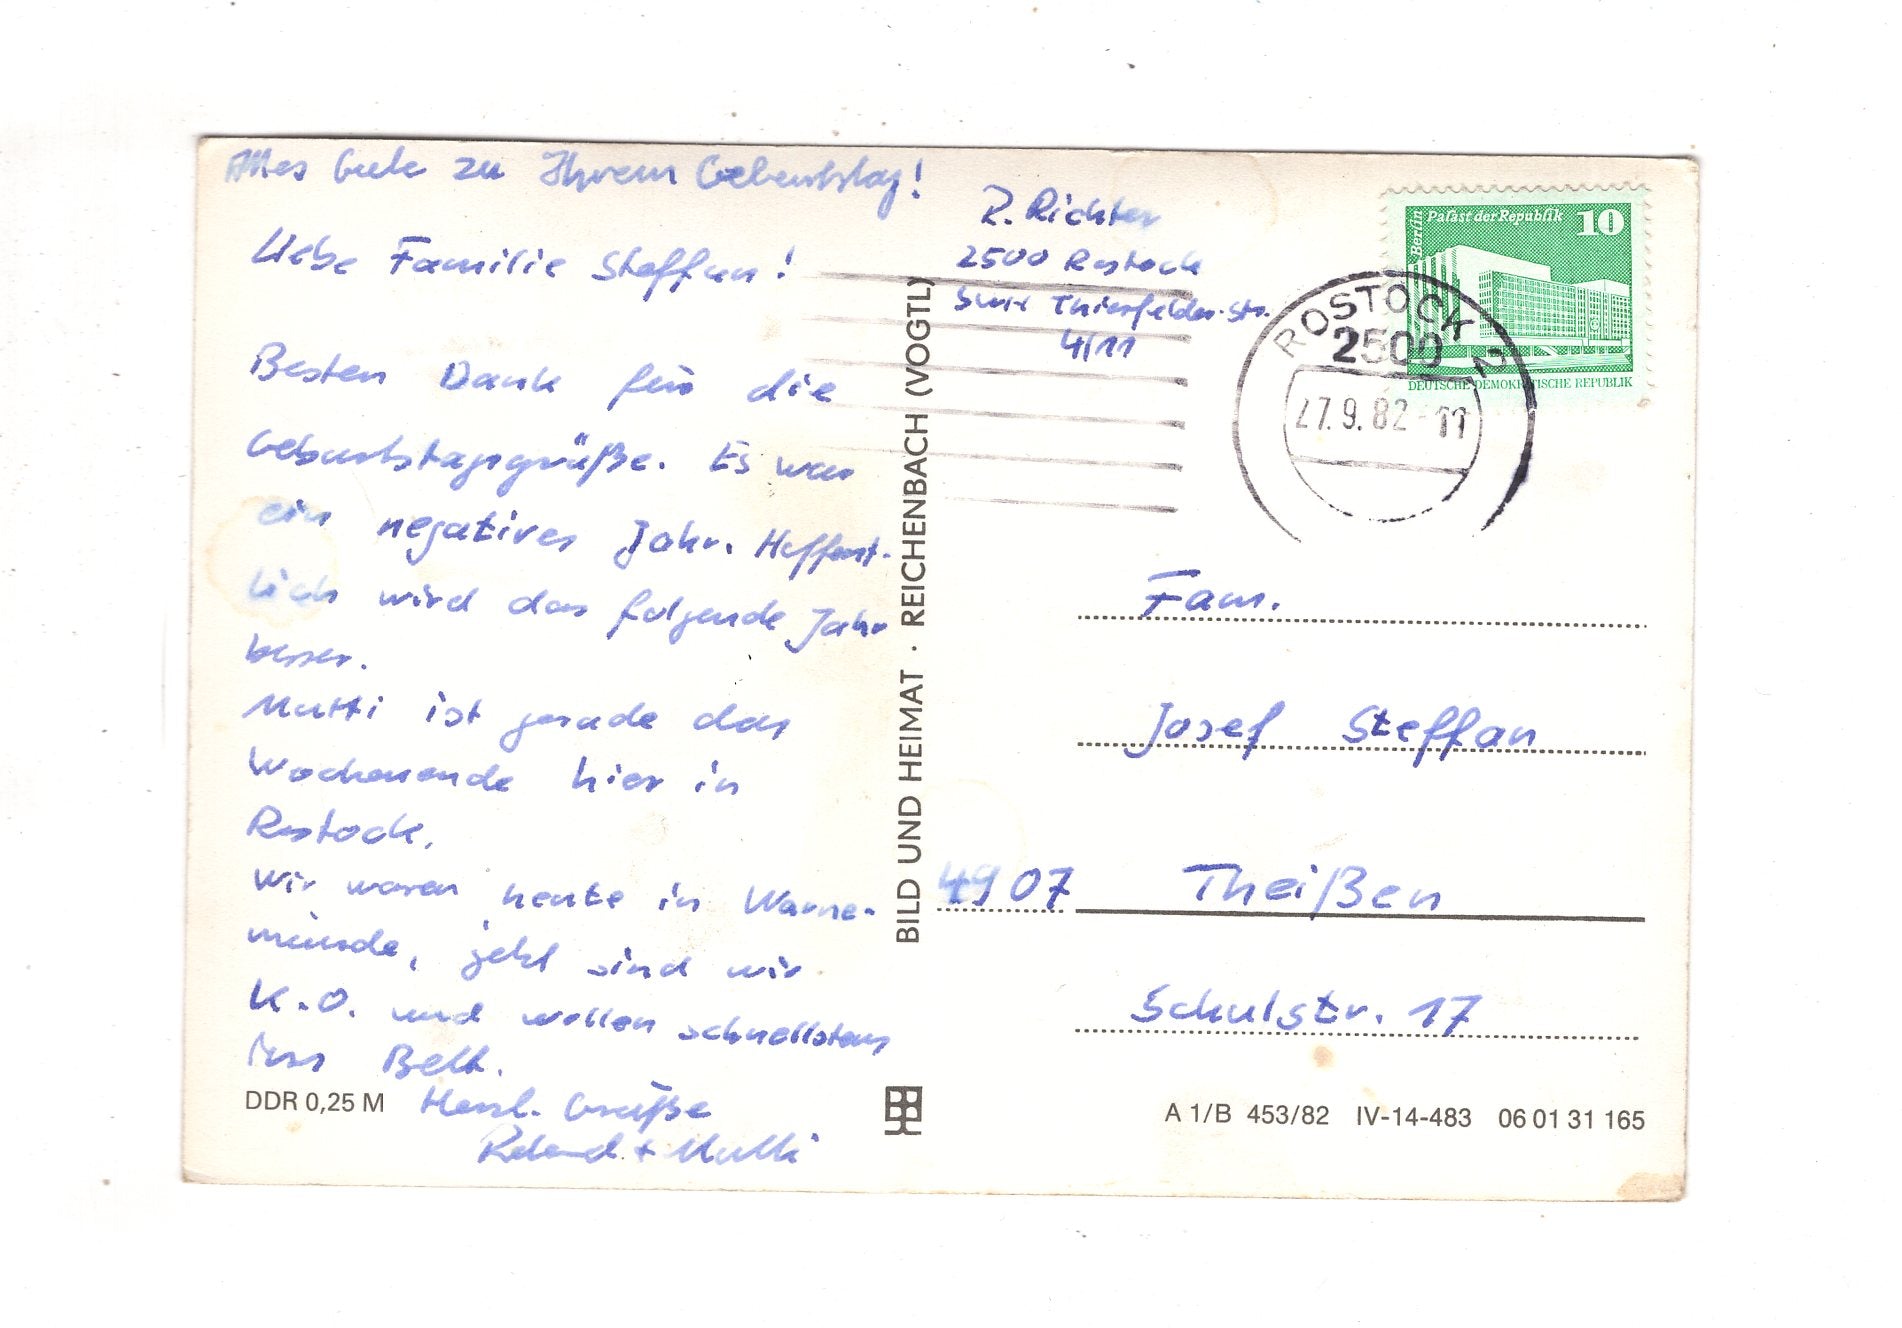 Alles Gute zu Ihrem Geburtstag!
Liebe Familie Steffan!
Besten Dank für die
Geburtstagsgrüße. Es war
ein negatives Jahr. Hoffent-
lich wird das folgende Jahr
besser.
Mutti ist gerade das
Wochenende hier in
Rostock.
Wir waren heute in Warne-
münde, jetzt sind wir
K.O. und wollen schnellstens
ins Bett.
Herzl. Grüße
Roland + Mutti
DDR 0,25 M
BILD UND HEIMAT · REICHENBACH (VOGTL)
R. Richter
2500 Rostock
Thierfelder-Str.
4/11
Berlin
Palast der Republik 10
DEUTSCHE DEMOKRATISCHE REPUBLIK
ROSTOCK
2500
27.9.82-11
Fam.
Josef Steffan
4907 Theißen
Schulstr. 17
A 1/B 453/82 IV-14-483 06 01 31 165